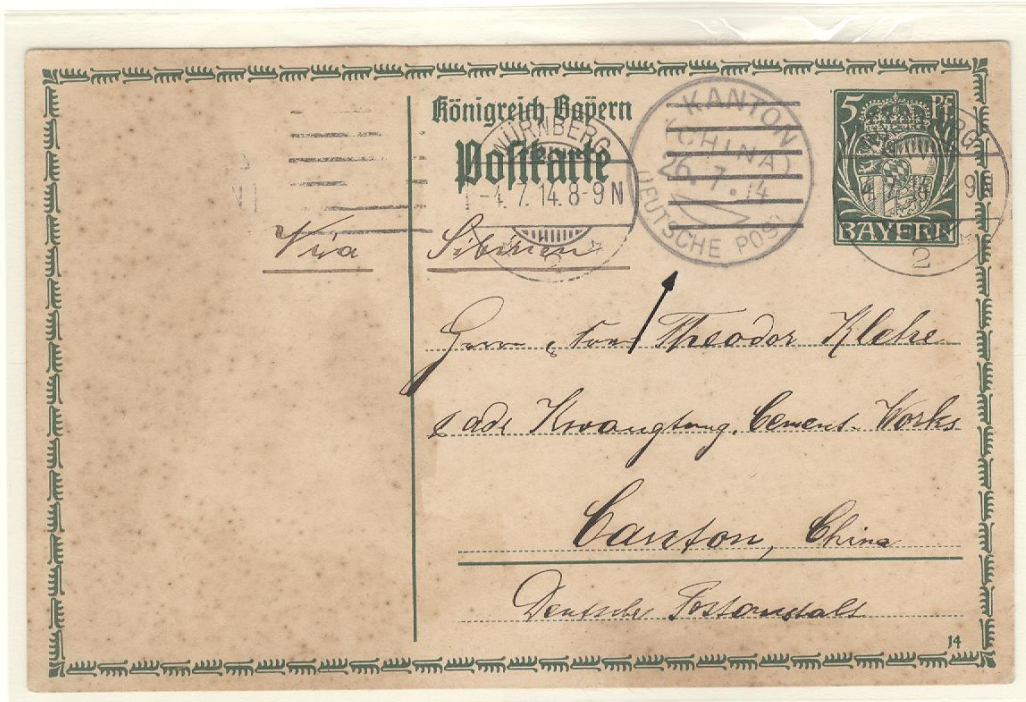 Königreich Bayern
Postkarte
5 Pf
BAYERN
NÜRNBERG
-4.7.14.8-9N
2
KANTON
(CHINA)
26.7.14
DEUTSCHE POST
Via Sibirien
Herrn Theodor
Kwangtung. Cement-Works
Canton, China
Deutsche Postanstalt
14